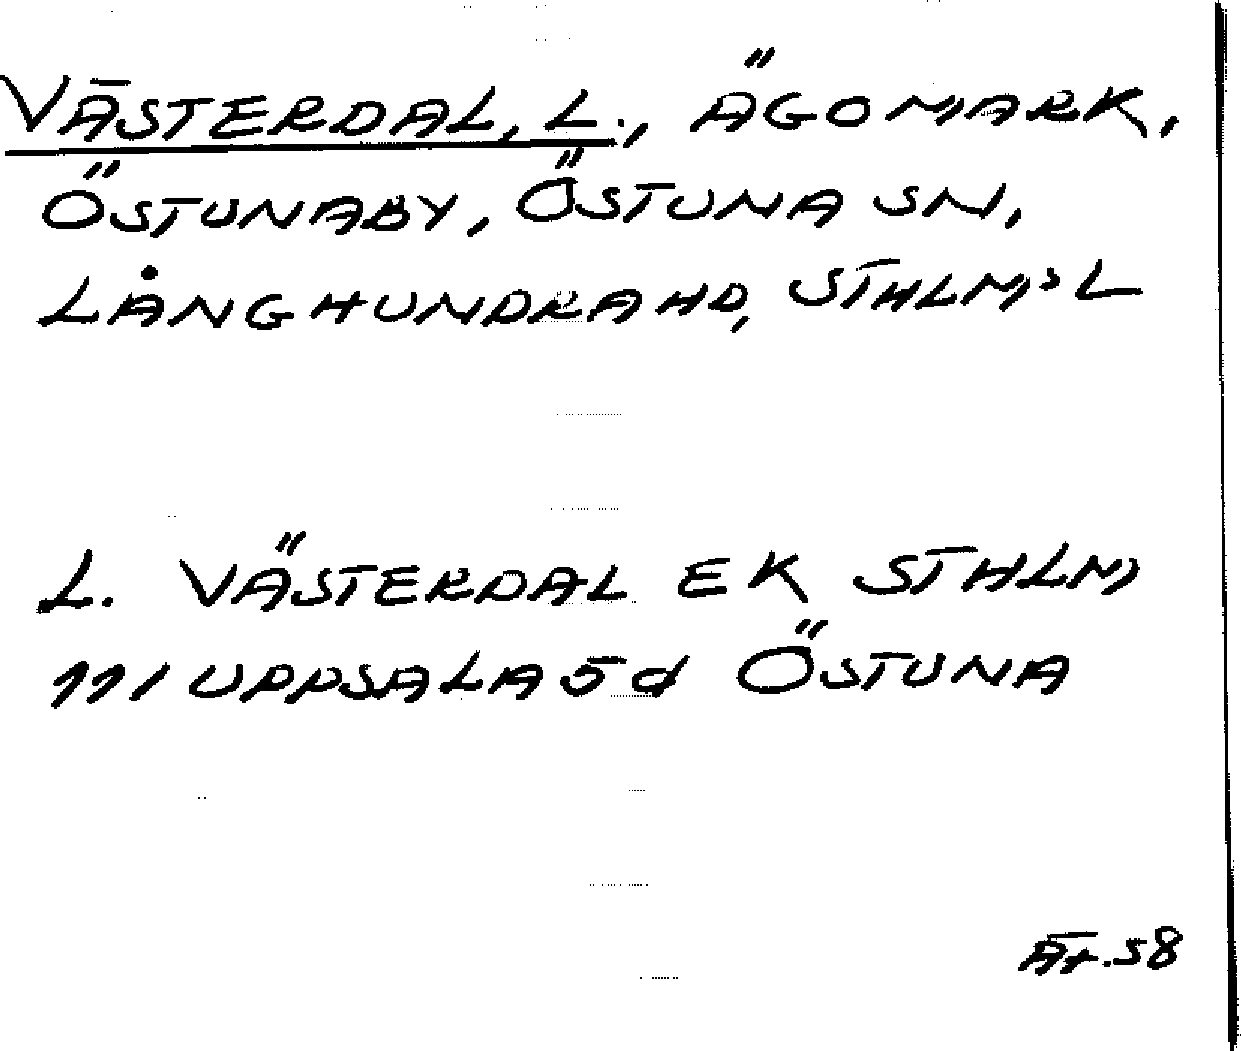 VÄSTERDAL, L., ÄGOMARK,
ÖSTUNABY, ÖSTUNA SN,
LÅNGHUNDRA HD, STHLMS L
L. VÄSTERDAL EK STHLM
111 UPPSALA 5d ÖSTUNA
ÄT.58